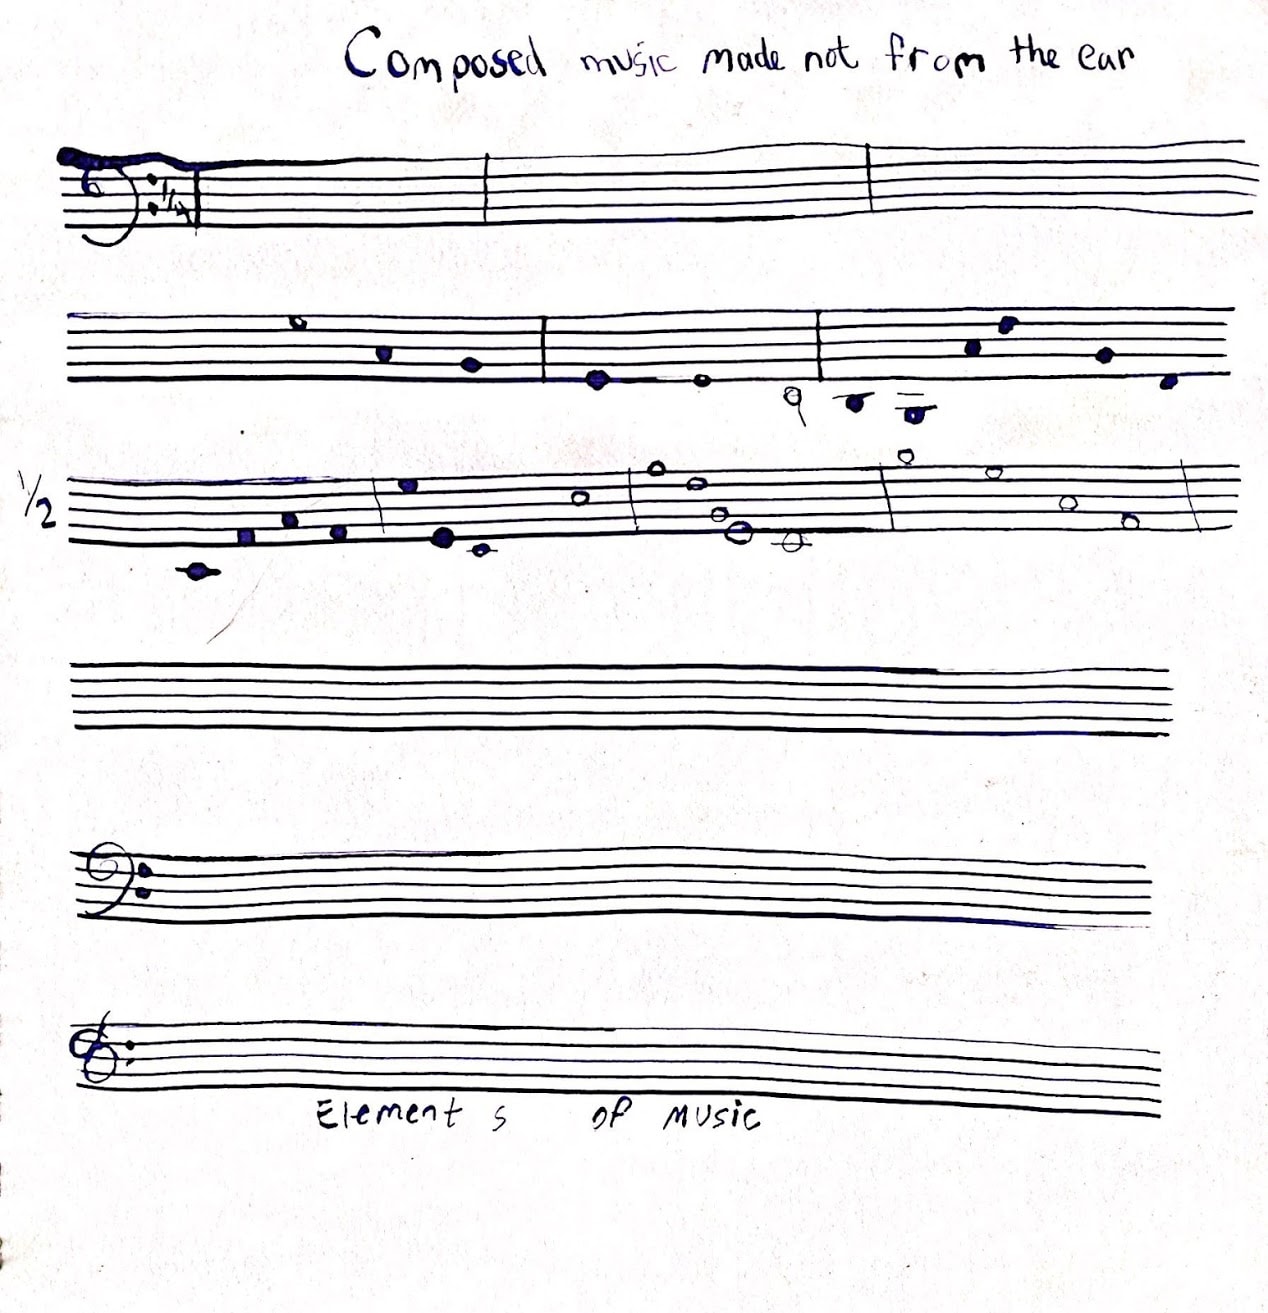 Composed music made not from the ear
1/4
1/2
Element s of music